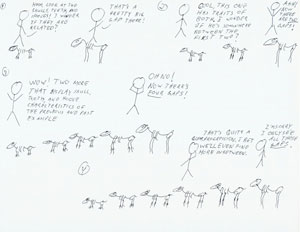 1)
HMM, LOOK AT THE
SKULLS, TEETH, AND
I WONDER
IF THEY ARE
RELATED?
THAT'S A
PRETTY BIG
GAP THERE!
2)
COOL, THIS ONE
HAS TRAITS OF
BOTH, I WONDER
IF HE'S SOMEWHERE
BETWEEN THE
FIRST TWO?
NOW
THERE ARE
TWO GAPS!
3)
WOW! TWO MORE
THAT DISPLAY SKULL,
TOOTH, AND FOOT
CHARACTERISTICS OF
THE PREVIOUS AND NEXT
EXAMPLE
OH NO!
NOW THERE'S
FOUR GAPS!
4)
THAT'S QUITE A
I BET
WE'LL EVEN FIND
MORE IN BETWEEN.
I'M SORRY
I ONLY SEE
ALL THESE
GAPS.